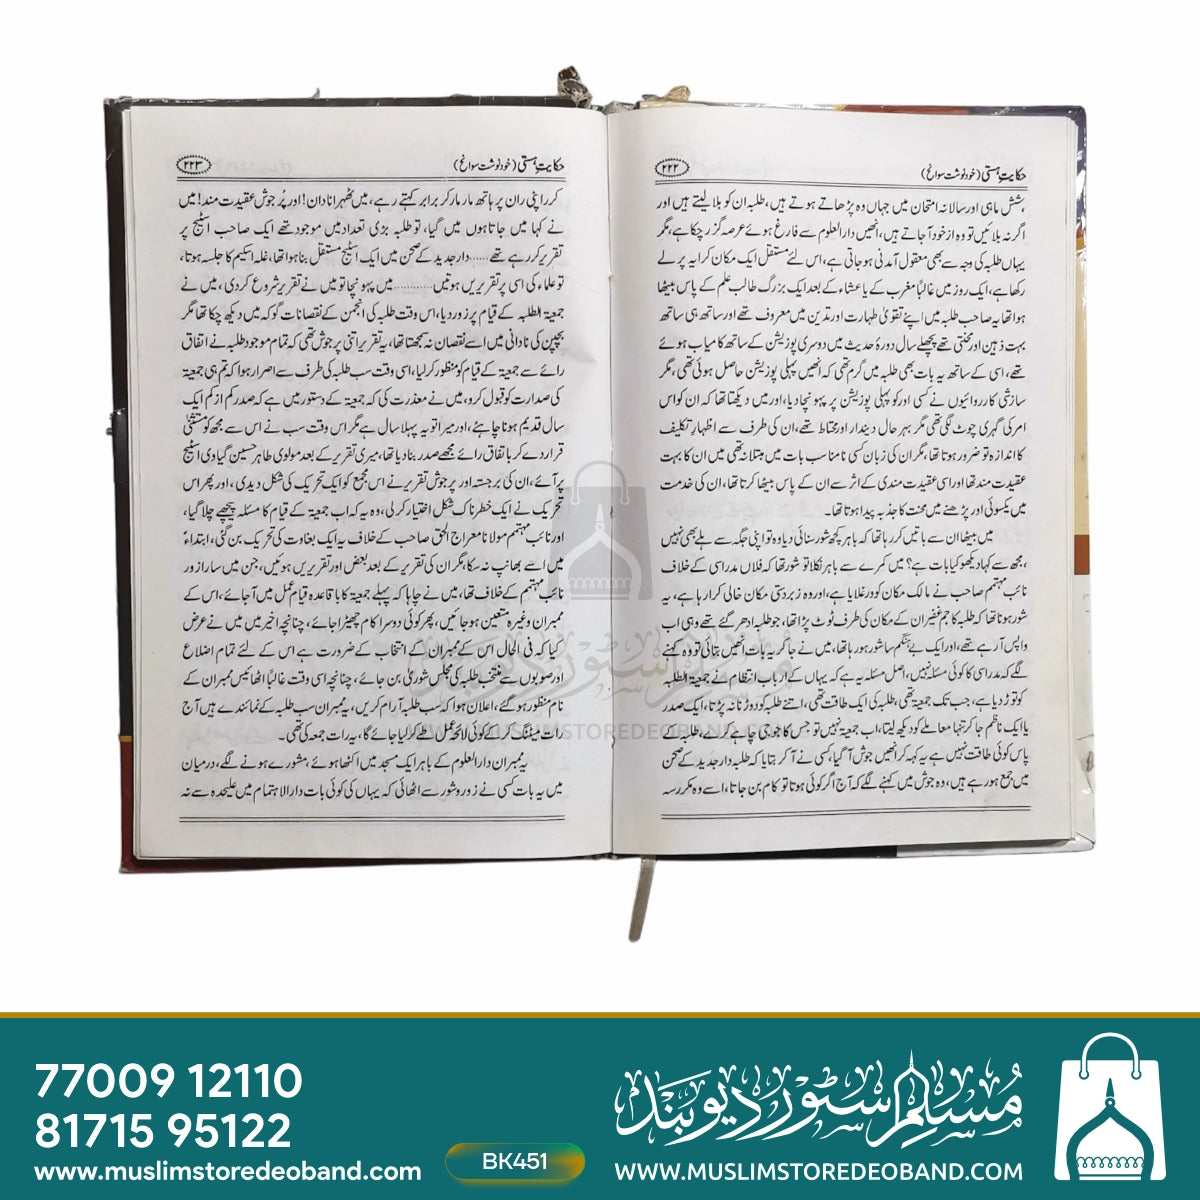 حکایتِ ہستی (خودنوشت سوانح)
۲۲۲
ششماہی اور سالانہ امتحان میں جہاں وہ پڑھاتے ہوتے ہیں، طلبہ ان کو بلا لیتے ہیں اور
اگر نہ بلائیں تو وہ از خود آجاتے ہیں، انھیں دارالعلوم سے فارغ ہوئے عرصہ گزر چکا ہے، مگر
یہاں طلبہ کی وجہ سے بھی معقول آمدنی ہو جاتی ہے، اس لئے مستقل ایک مکان کرایہ پر لے
رکھا ہے، ایک روز میں غالباً مغرب کے یا عشاء کے بعد ایک بزرگ طالب علم کے پاس بیٹھا
ہوا تھا یہ صاحب طلبہ میں اپنے تقویٰ، طہارت اور تدین میں معروف تھے اور ساتھ ہی ساتھ
بہت ذہین اور محنتی تھے پچھلے سال دورۂ حدیث میں دوسری پوزیشن کے ساتھ کامیاب ہوئے
تھے، اسی کے ساتھ یہ بات بھی طلبہ میں گرم تھی کہ انھیں پہلی پوزیشن حاصل ہوئی تھی، مگر
سازشی کارروائیوں نے کسی اور کو پہلی پوزیشن پر پہونچا دیا، اور میں دیکھتا تھا کہ ان کو اس
امر کی گہری چوٹ لگی تھی مگر بہر حال دیندار اور محتاط تھے، ان کی طرف سے اظہارِ تکلیف
کا اندازہ تو ضرور ہوتا تھا، مگر ان کی زبان کسی نامناسب بات میں مبتلا نہ تھی میں ان کا بہت
عقیدت مند تھا اور اسی عقیدت مندی کے اثر سے ان کے پاس بیٹھا کرتا تھا، ان کی خدمت
میں یکسوئی اور پڑھنے میں محنت کا جذبہ پیدا ہوتا تھا۔
میں بیٹھا ان سے باتیں کر رہا تھا کہ باہر کچھ شور سنائی دیا وہ تو اپنی جگہ سے ہلے بھی نہیں
، مجھ سے کہا دیکھو کیا بات ہے؟ میں کمرے سے باہر نکلا تو شور تھا کہ فلاں مدراسی کے خلاف
نائب مہتمم صاحب نے مالک مکان کو ورغلایا ہے، اور وہ زبردستی مکان خالی کرا رہا ہے، یہ
شور ہونا تھا کہ طلبہ کا جم غفیر ان کے مکان کی طرف ٹوٹ پڑا تھا، جو طلبہ ادھر گئے تھے وہی اب
واپس آرہے تھے، اور ایک بے ہنگم سا شور ہو رہا تھا، میں نے جا کر یہ بات انھیں بتائی تو وہ کہنے
لگے کہ مدراسی کا کوئی مسئلہ نہیں، اصل مسئلہ یہ ہے کہ یہاں کے ارباب انتظام نے جمعیۃ الطلبہ
کو توڑ دیا ہے، جب تک جمعیۃ تھی، طلبہ کی ایک طاقت تھی، اتنے طلبہ کو دوڑنا نہ پڑتا، ایک صدر
یا ایک ناظم جا کر تنہا معاملے کو دیکھ لیتا، اب جمعیۃ نہیں تو جس کا جو جی چاہے کرے، طلبہ کے
پاس کوئی طاقت نہیں ہے یہ کہہ کر انھیں جوش آگیا، کسی نے آکر بتایا کہ طلبہ دار جدید کے صحن
میں جمع ہو رہے ہیں، وہ جوش میں کہنے لگے کہ آج اگر کوئی ہوتا تو کام بن جاتا، اسے وہ مکرر سہ
حکایتِ ہستی (خودنوشت سوانح)
۲۲۳
کرر اپنی ران پر ہاتھ مار مار کر برابر کہتے رہے، میں ٹھہرا نادان! اور پُر جوش عقیدت مند! میں
نے کہا میں جاتا ہوں میں گیا، تو طلبہ بڑی تعداد میں موجود تھے ایک صاحب اسٹیج پر
تقریر کر رہے تھے......دار جدید کے صحن میں ایک اسٹیج مستقل بنا ہوا تھا، غلہ اسکیم کا جلسہ ہوتا،
تو علماء کی اسی پر تقریریں ہوتیں............میں پہونچا تو میں نے تقریر شروع کر دی، میں نے
جمعیۃ الطلبہ کے قیام پر زور دیا، اس وقت طلبہ کی انجمن کے نقصانات گو کہ میں دیکھ چکا تھا مگر
بچپن کی نادانی میں اسے نقصان نہ سمجھتا تھا، یہ تقریر اتنی پر جوش تھی کہ تمام موجود طلبہ نے اتفاق
رائے سے جمعیۃ کے قیام کو منظور کر لیا، اسی وقت سب طلبہ کی طرف سے اصرار ہوا کہ تم ہی جمعیۃ
کی صدارت کو قبول کرو، میں نے معذرت کی کہ جمعیۃ کے دستور میں ہے کہ صدر کم از کم ایک
سال قدیم ہونا چاہئے، اور میرا تو یہ پہلا سال ہے مگر اس وقت سب نے اس سے مجھ کو مستثنیٰ
قرار دے کر باتفاق رائے مجھے صدر بنا دیا تھا، میری تقریر کے بعد مولوی طاہر حسین گیاوی اسٹیج
پر آئے، ان کی برجستہ اور پر جوش تقریر نے اس مجمع کو ایک تحریک کی شکل دیدی، اور پھر اس
تحریک نے ایک خطرناک شکل اختیار کر لی، وہ یہ کہ اب جمعیۃ کے قیام کا مسئلہ پیچھے چلا گیا،
اور نائب مہتمم مولانا معراج الحق صاحب کے خلاف یہ ایک بغاوت کی تحریک بن گئی، ابتداءً
میں اسے بھانپ نہ سکا، مگر ان کی تقریر کے بعد بعض اور تقریریں ہوئیں، جن میں سارا زور
نائب مہتمم کے خلاف تھا، میں نے چاہا کہ پہلے جمعیۃ کا باقاعدہ قیام عمل میں آجائے، اس کے
ممبران وغیرہ متعین ہو جائیں، پھر کوئی دوسرا کام چھیڑا جائے، چنانچہ اخیر میں میں نے عرض
کیا کہ فی الحال اس کے ممبران کے انتخاب کے ضرورت ہے اس کے لئے تمام اضلاع
اور صوبوں سے منتخب طلبہ کی مجلس شوریٰ بن جائے، چنانچہ اسی وقت غالباً اٹھائیس ممبران کے
نام منظور ہو گئے، اعلان ہوا کہ سب طلبہ آرام کریں، یہ ممبران سب طلبہ کے نمائندے ہیں آج
رات میٹنگ کر کے کوئی لائحہ عمل طے کر لیا جائے گا، یہ رات جمعہ کی تھی۔
یہ ممبران دارالعلوم کے باہر ایک مسجد میں اکٹھا ہوئے، مشورے ہونے لگے، درمیان
میں یہ بات کسی نے زور و شور سے اٹھائی کہ یہاں کی کوئی بات دارالاہتمام میں علیحدہ سے نہ
مسلم سٹور دیوبند
WWW.MUSLIMSTOREDEOBAND.COM
77009 12110
81715 95122
www.muslimstoredeoband.com
BK451
مسلم سٹور دیوبند
WWW.MUSLIMSTOREDEOBAND.COM